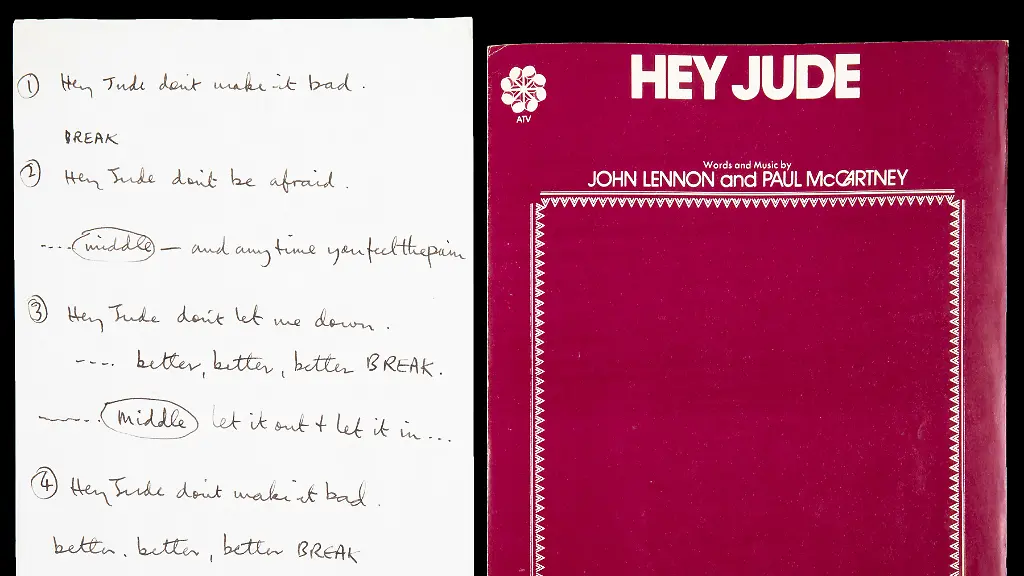 ① Hey Jude don't make it bad.
BREAK
② Hey Jude don't be afraid.
---- middle — and anytime you feel the pain
③ Hey Jude don't let me down.
---- better, better, better BREAK.
---- middle let it out + let it in...
④ Hey Jude don't make it bad.
better. better, better BREAK
HEY JUDE
ATV
Words and Music by
JOHN LENNON and PAUL McCARTNEY